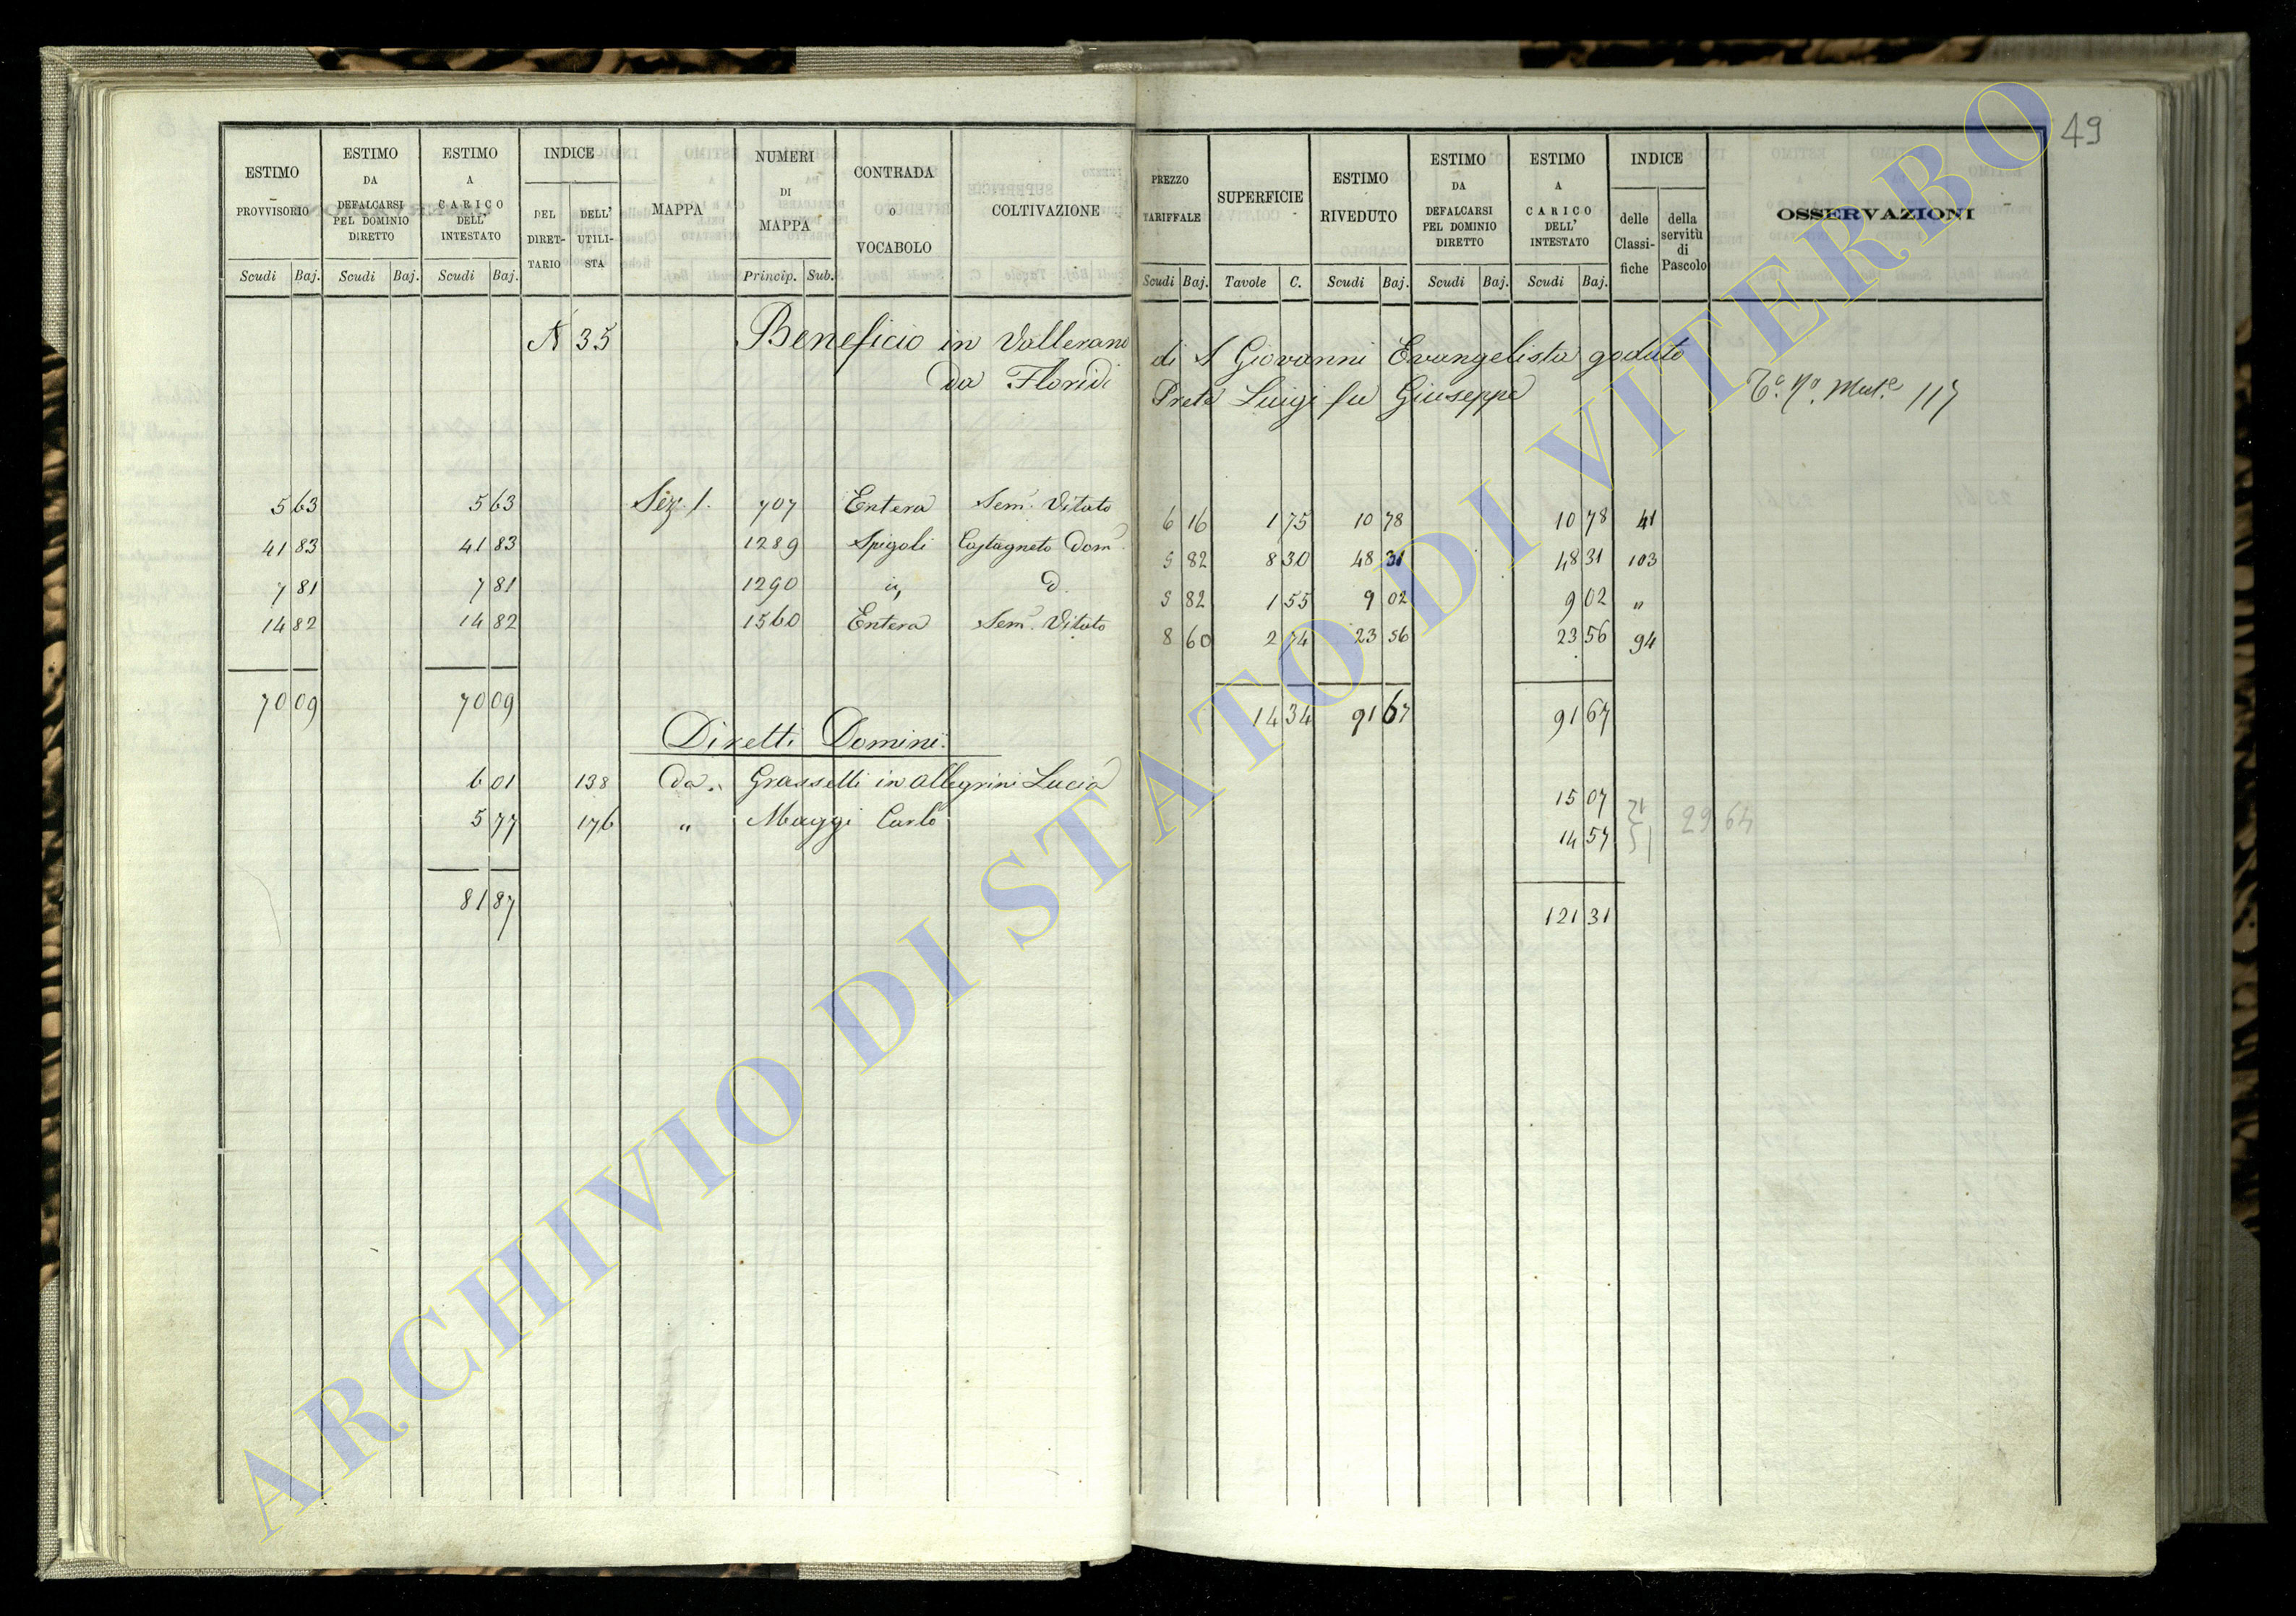 49
ESTIMO PROVVISORIO | ESTIMO DA DEFALCARSI PEL DOMINIO DIRETTO | ESTIMO A CARICO DELL' INTESTATO | INDICE DEL DIRETTARIO | DELL' UTILISTA | MAPPA | NUMERI DI MAPPA | CONTRADA o VOCABOLO | COLTIVAZIONE | PREZZO TARIFFALE | SUPERFICIE | ESTIMO RIVEDUTO | ESTIMO DA DEFALCARSI PEL DOMINIO DIRETTO | ESTIMO A CARICO DELL' INTESTATO | INDICE delle Classifiche | della servitù di Pascolo | OSSERVAZIONI
Scudi Baj. | Scudi Baj. | Scudi Baj. | Princip. Sub. | Scudi Baj. | Tavole C. | Scudi Baj. | Scudi Baj. | Scudi Baj.
N 35 Beneficio in Vallerano di S Giovanni Evangelista goduto
da Floridi Prete Luigi fu Giuseppe 117
5 63 | 5 63 | Sez. 1. | 707 | Entera | Sem. Vitato | 6 16 | 1 75 | 10 78 | 10 78 | 41
41 83 | 41 83 | 1289 | Spigoli | Castagneto Dom. | 5 82 | 8 30 | 48 31 | 48 31 | 103
7 81 | 7 81 | 1290 | id. | d. | 5 82 | 1 55 | 9 02 | 9 02 | "
14 82 | 14 82 | 1560 | Entera | Sem. Vitato | 8 60 | 2 74 | 23 56 | 23 56 | 94
70 09 | 70 09 | 14 34 | 91 67 | 91 67
Diretti Domini.
6 01 | 138 | Da | Grasselli in Allegrini Lucia | 15 07
5 77 | 176 | " | Maggi Carlo | 14 57 | 29 64
81 87 | 121 31
ARCHIVIO DI STATO DI VITERBO